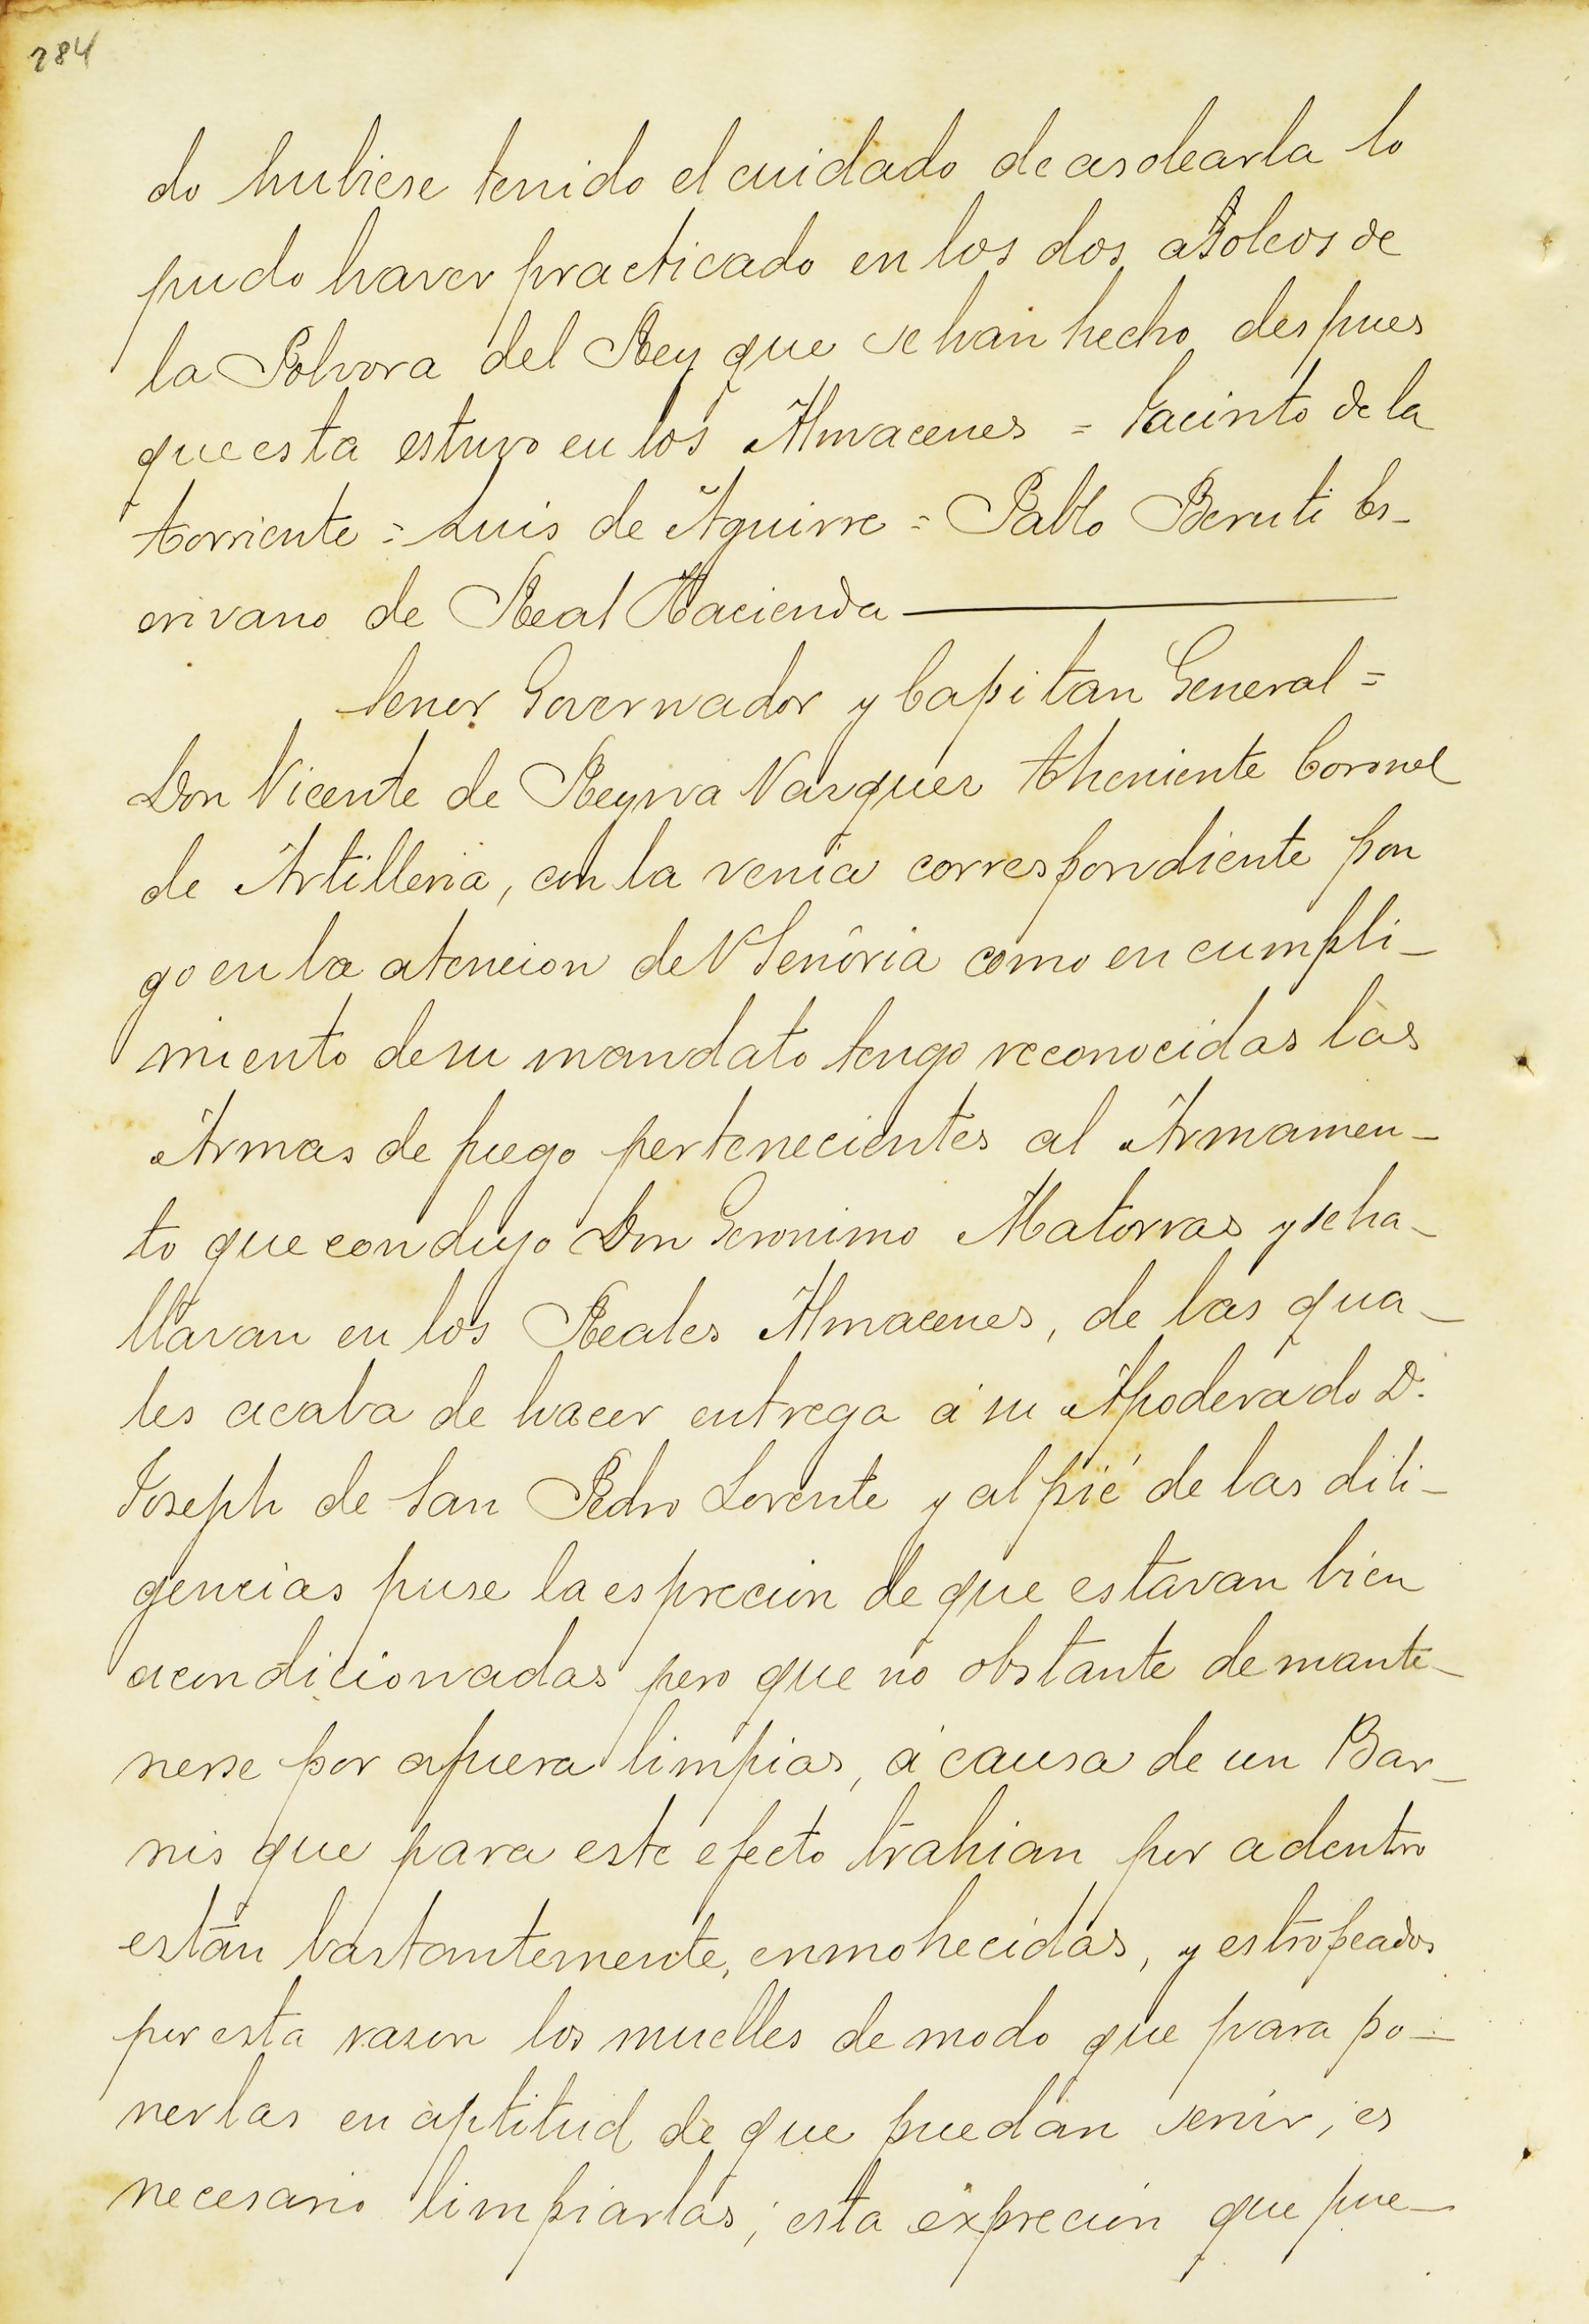 284
do hubiese tenido el cuidado de asolearla lo
pudo haver practicado en los dos asoleos de
la Polvora del Rey que se han hecho despues
que esta estuvo en los Almacenes = Jacinto de la
Torriente = Luis de Aguirre = Pablo Beruti Es-
crivano de Real Hacienda
Senor Governador y Capitan General =
Don Vicente de Reyna Vazquez Theniente Coronel
de Artilleria, con la venia correspondiente pon
go en la atencion de V Senoria como en cumpli-
miento de su mandato tengo reconocidas las
Armas de fuego pertenecientes al Armamen-
to que condujo Don Geronimo Matorras y se ha-
llavan en los Reales Almacenes, de las qua-
les acaba de hacer entrega á su Apoderado D.
Joseph de San Pedro Lorente y al pié de las dili-
gencias puse la esprecion de que estavan bien
acondicionadas pero que no obstante de mante-
nerse por afuera limpias, á causa de un Bar-
nis que para este efecto trahian por adentro
están bastantemente, enmohecidas, y estropeados
por esta razon los muelles de modo que para po-
nerlas en aptitud de que puedan servir, es
necesario limpiarlas; esta exprecion que pue-